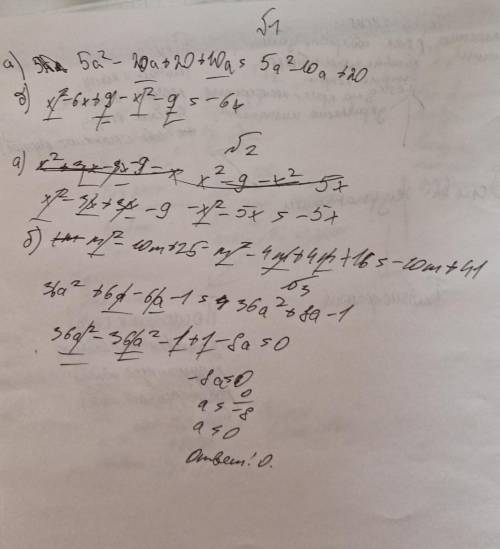 №1
а) 5a² - 20a + 20 + 10a = 5a² - 10a + 20
б) x² - 6x + 9 - x² - 9 = -6x
№2
а) x² + 3x - 3x - 9 - x x² - 9 - x² 5x
x² - 3x + 3x - 9 - x² - 5x = -5x
б) m² - 10m + 25 - m² - 4m + 4m + 16 = -10m + 41
№3
36a² + 6a - 6a - 1 = 36a² + 8a - 1
36a² - 36a² - 1 + 1 - 8a = 0
-8a = 0
a = 0/-8
a = 0
Ответ: 0.